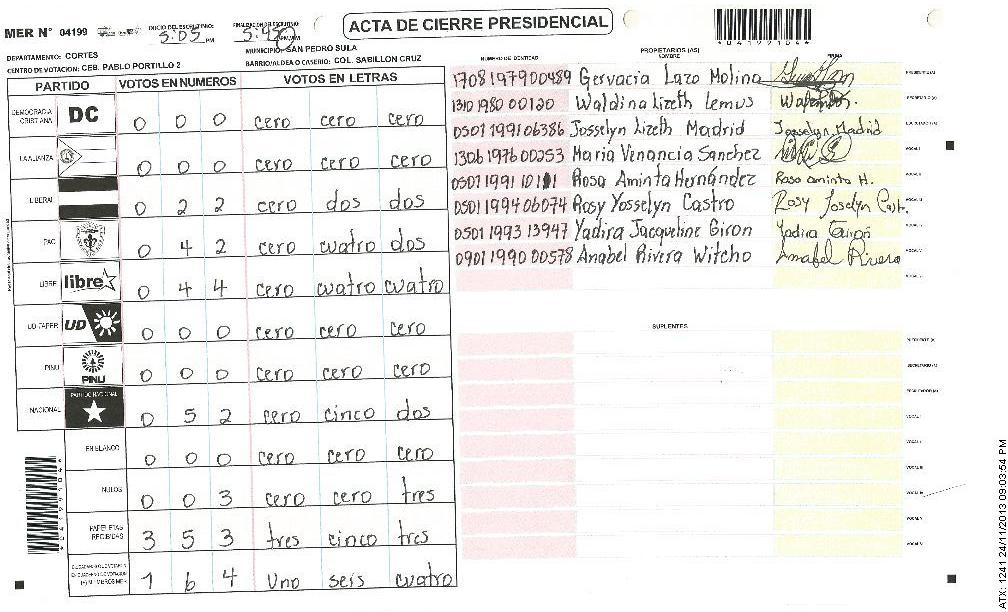 ACTA DE CIERRE PRESIDENCIAL
MER N° 04199
INICIO DEL ESCRUTINIO: 5:05 PM
FINALIZACION DEL ESCRUTINIO:
*041991044*
DEPARTAMENTO: CORTES
MUNICIPIO: SAN PEDRO SULA
CENTRO DE VOTACION: CEB. PABLO PORTILLO 2
BARRIO/ALDEA O CASERIO: COL. SABILLON CRUZ
PARTIDO VOTOS EN NUMEROS VOTOS EN LETRAS
DEMOCRACIA CRISTIANA DC 0 0 0 cero cero cero
LA ALIANZA 0 0 0 cero cero cero
LIBERAL 0 2 2 cero dos dos
PAC 0 4 2 cero cuatro dos
LIBRE libre 0 4 4 cero cuatro cuatro
UD-FAPER UD 0 0 0 cero cero cero
PINU PINU 0 0 0 cero cero cero
NACIONAL PARTIDO NACIONAL 0 5 2 cero cinco dos
EN BLANCO 0 0 0 cero cero cero
NULOS 0 0 3 cero cero tres
PAPELETAS RECIBIDAS 3 5 3 tres cinco tres
1 6 4 Uno seis cuatro
PROPIETARIOS (AS)
NUMERO DE IDENTIDAD NOMBRE FIRMA
1708197900489 Gervacia Lazo Molina PRESIDENTE (A)
1310 1980 00120 Waldina Lizeth Lemus SECRETARIO (A)
0501 1991 06386 Josselyn Lizeth Madrid Josselyn Madrid ESCRUTADOR (A)
1306 1976 00253 Maria Venancia Sanchez VOCAL I
Rosa Aminta Hernández Rosa aminta H. VOCAL II
0501 1994 06074 Rosy Yosselyn Castro Rosy Joselyn Cast. VOCAL III
0501 1993 13947 Yadira Jacqueline Giron Yadira Giron VOCAL IV
0901 1990 00578 Anabel Rivera Witcho Anabel Rivera VOCAL V
SUPLENTES
PRESIDENTE (A)
SECRETARIO (A)
ESCRUTADOR (A)
VOCAL I
VOCAL II
VOCAL III
VOCAL IV
VOCAL V
ATX: 1241 24/11/2013 09:03:54 PM